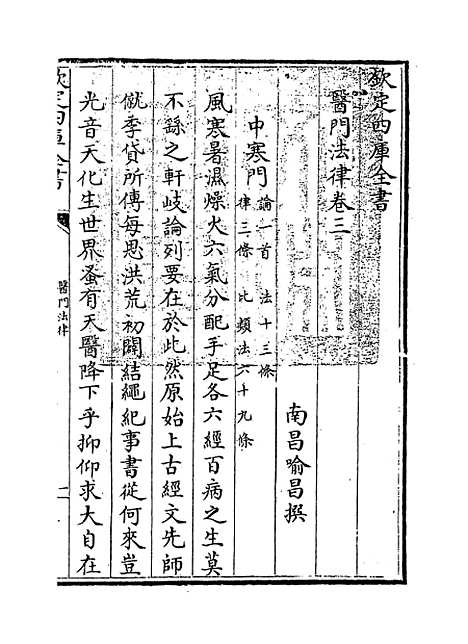 欽定四庫全書
醫門法律卷三
南昌喻昌撰
中寒門
論一首 法十三條
律三條 比類法六十九條
風寒暑濕燥火六氣分配手足各六經百病之生莫
不繇之軒岐論列要在於此然原始上古經文先師
僦季貸所傳每思洪荒初闢結繩紀事書從何來豈
光音天化生世界蚤有天醫降下乎抑仰求大自在
欽定四庫全書
醫門法律